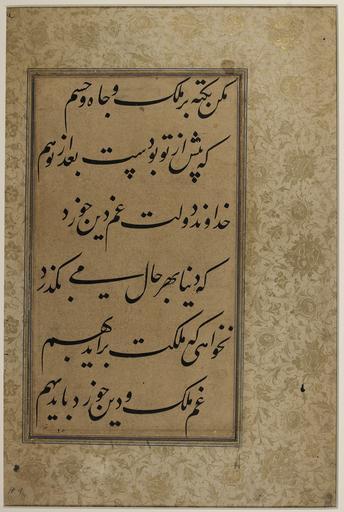 مکن تکیه بر ملک و جاه و حشم
که پیش از تو بودست بعد از تو هم
خداوند دولت غم دین خورد
که دنیا بهر حال می بگذرد
نخواهی که ملکت برآید بهم
غم ملک و دین خورد باید بهم